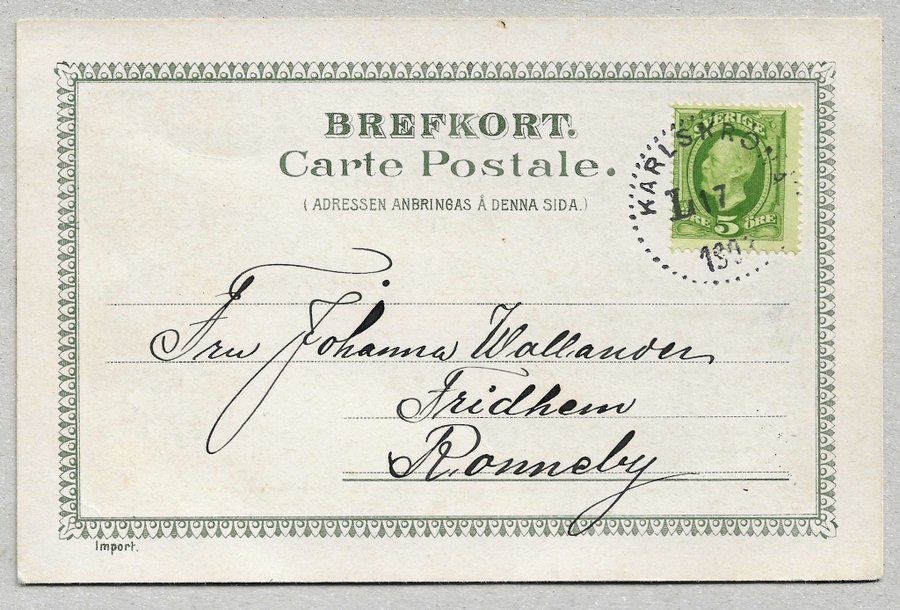 BREFKORT.
Carte Postale.
(ADRESSEN ANBRINGAS Å DENNA SIDA.)
SVERIGE
5 ÖRE
L 17
Fru Johanna Wallander
Fridhem
Ronneby
Import.